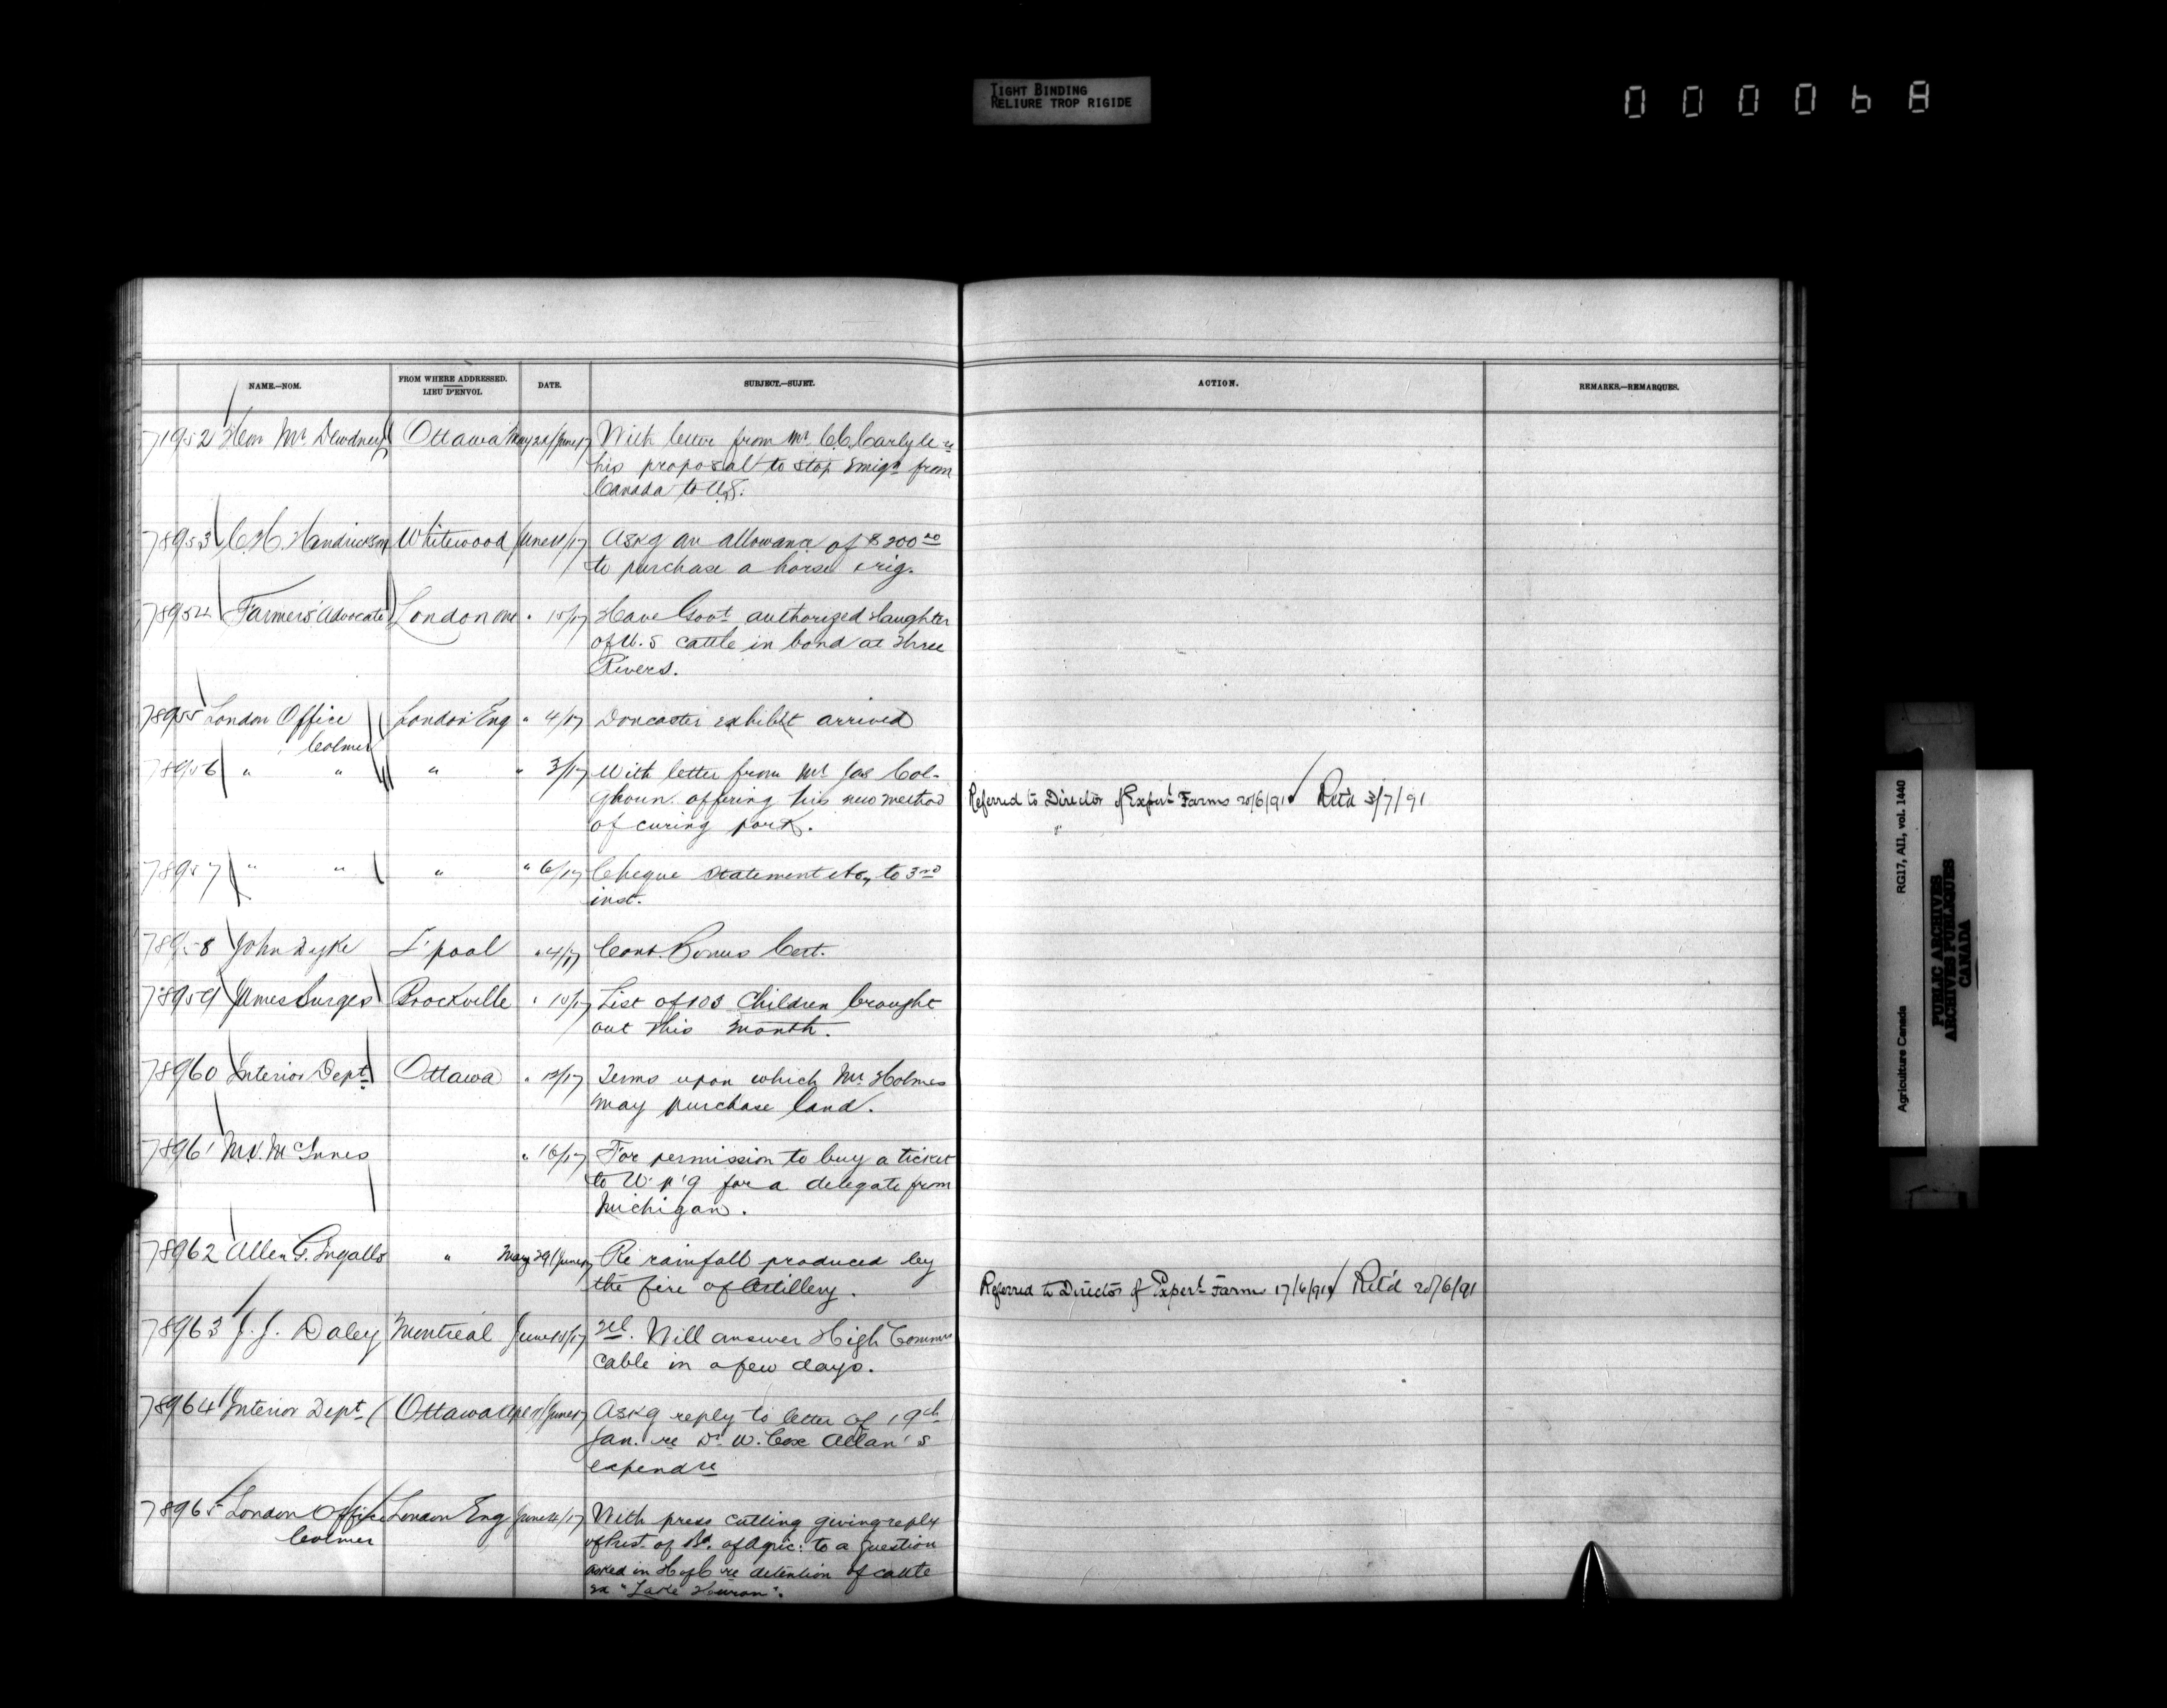 TIGHT BINDING
RELIURE TROP RIGIDE
NAME.—NOM.
FROM WHERE ADDRESSED.
LIEU D'ENVOI.
DATE.
SUBJECT.—SUJET.
ACTION.
REMARKS.—REMARQUES.
71952 Hon Mr. Dewdney Ottawa May 20/June 17 With letter from Mr C.C. Carlyle re
his proposal to stop Emign from
Canada to U.S.
78953 C.H. Hendrickson Whitewood June 11/17 Askg an allowance of $200 00
to purchase a horse & rig.
78954 Farmers' Advocate London Ont " 15/17 Have Govt authorized slaughter
of U.S cattle in bond at Three
Rivers.
78955 London Office London Eng " 4/17 Doncaster exhibit arrived
Colmer
78956 " " " " 3/17 With letter from Mr Jas Col-
qhoun offering his new method
of curing pork.
Referred to Director of Expert Farms 20/6/91 Ret'd 3/7/91
78957 " " " " 6/17 Cheque Statement &c, to 3rd
inst.
78958 John Dyke L'pool " 4/17 Cont. Bonus Cert.
78959 James Burges Brockville " 10/17 List of 103 Children brought
out this month.
78960 Interior Dept Ottawa " 12/17 Terms upon which Mr Holmes
may purchase land.
78961 McInnes " 16/17 For permission to buy a ticket
to W'p'g for a delegate from
Michigan.
78962 Allen G. Ingalls " May 29/June 17 Re rainfall produced by
the fire of Artillery.
Referred to Director of Expert Farm 17/6/91 Ret'd 20/6/91
78963 J.J. Daley Montreal June 15/17 Tel. Will answer High Commrs
cable in a few days.
78964 Interior Dept Ottawa June 17 Askg reply to letter of 19th
Jan. re Dr W. Cox Allan's
expendre
78965 London Office London Eng June 4/17 With press cutting giving reply
Colmer
of Prest. of Bd. of Agric: to a question
asked in H of C re detention of cattle
ex "Lake Huron".
Agriculture Canada RG17, AII, vol. 1440
PUBLIC ARCHIVES
ARCHIVES PUBLIQUES
CANADA